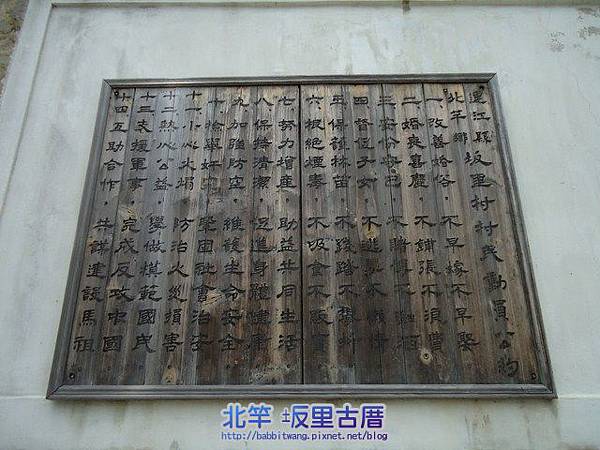 連江縣
北竿鄉
坂里村村民動員公約
一、改善婚俗，不早嫁不早娶
二、婚喪喜慶，不鋪張不浪費
三、安份守己，不賭博不
四、督促子女，不逃學不
五、保護林苗，不踐踏不攀折
六、根絕煙毒，不吸食不販賣
七、努力增產，助益共同生活
八、保持清潔，促進身體健康
九、加強防空，維護生命安全
十、檢舉奸宄，鞏固社會治安
十一、小心火燭，防治火災損害
十二、熱心公益，學做模範國民
十三、支援軍事，完成反攻中國
十四、互助合作，共謀建設馬祖
北竿 坂里古厝
http://babbitwang.pixnet.net/blog